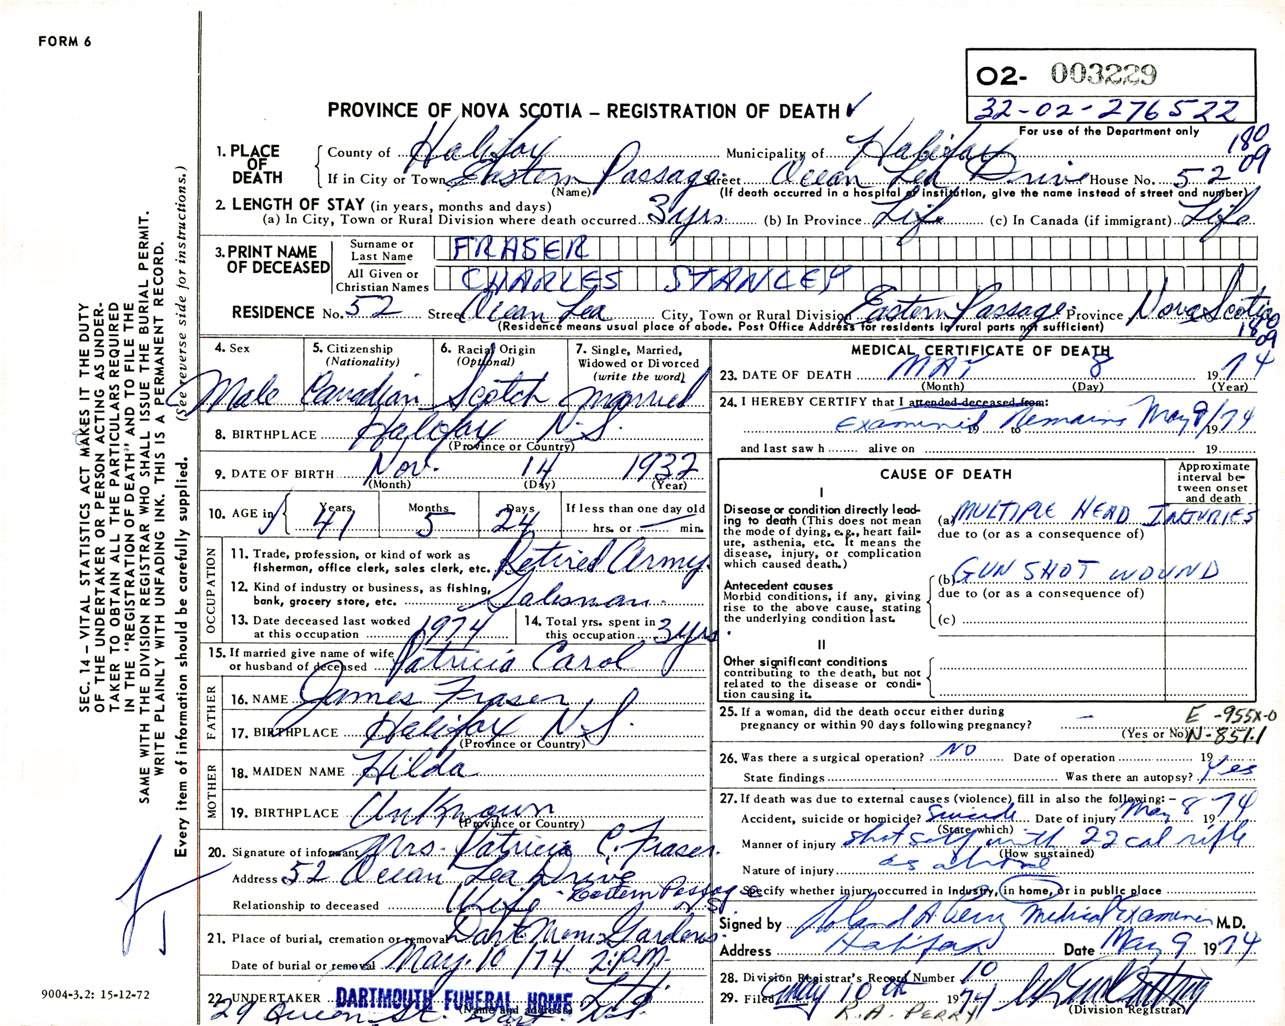 FORM 6
O2- 003229
32-02-276522
For use of the Department only
PROVINCE OF NOVA SCOTIA – REGISTRATION OF DEATH
180
09
1. PLACE OF DEATH
County of Halifax Municipality of Halifax
If in City or Town Eastern Passage Street Ocean Lea Drive House No. 52
(Name) (If death occurred in a hospital or institution, give the name instead of street and number)
2. LENGTH OF STAY (in years, months and days)
(a) In City, Town or Rural Division where death occurred 3 yrs (b) In Province Life (c) In Canada (if immigrant) Life
3. PRINT NAME OF DECEASED
Surname or Last Name FRASER
All Given or Christian Names CHARLES STANLEY
RESIDENCE No. 52 Street Ocean Lea City, Town or Rural Division Eastern Passage Province Nova Scotia
(Residence means usual place of abode. Post Office Address for residents in rural parts not sufficient)
180
09
4. Sex
Male
5. Citizenship
(Nationality)
Canadian
6. Racial Origin
(Optional)
Scotch
7. Single, Married,
Widowed or Divorced
(write the word)
Married
8. BIRTHPLACE Halifax N.S.
(Province or Country)
9. DATE OF BIRTH Nov. 14 1932
(Month) (Day) (Year)
10. AGE in
Years Months Days If less than one day old
41 5 24 hrs. or — min.
OCCUPATION
11. Trade, profession, or kind of work as
fisherman, office clerk, sales clerk, etc. Retired Army
12. Kind of industry or business, as fishing,
bank, grocery store, etc. Salesman
13. Date deceased last worked
at this occupation 1974
14. Total yrs. spent in
this occupation 3 yrs.
15. If married give name of wife
or husband of deceased Patricia Carol
FATHER
16. NAME James Fraser
17. BIRTHPLACE Halifax N.S.
(Province or Country)
MOTHER
18. MAIDEN NAME Hilda
19. BIRTHPLACE Unknown
(Province or Country)
20. Signature of informant Mrs. Patricia C. Fraser
Address 52 Ocean Lea Drive
Eastern Passage N.S.
Relationship to deceased Wife
21. Place of burial, cremation or removal Dart. Mem. Gardens
Date of burial or removal May. 10 /74 2 P.M.
22. UNDERTAKER DARTMOUTH FUNERAL HOME Ltd.
(Name and address)
29 Queen St. Dart.
MEDICAL CERTIFICATE OF DEATH
23. DATE OF DEATH MAY 8 1974
(Month) (Day) (Year)
24. I HEREBY CERTIFY that I attended deceased from:
Examined Remains May 9/74
19 to 19
and last saw h alive on 19
CAUSE OF DEATH
Approximate interval between onset and death
I
Disease or condition directly leading to death (This does not mean the mode of dying, e.g., heart failure, asthenia, etc. It means the disease, injury, or complication which caused death.)
(a) MULTIPLE HEAD INJURIES
due to (or as a consequence of)
Antecedent causes
Morbid conditions, if any, giving rise to the above cause, stating the underlying condition last.
(b) GUN SHOT WOUND
due to (or as a consequence of)
(c)
II
Other significant conditions
contributing to the death, but not related to the disease or condition causing it.
25. If a woman, did the death occur either during
pregnancy or within 90 days following pregnancy? —
(Yes or No)
E -955X-0
N-851.1
26. Was there a surgical operation? NO Date of operation 19
State findings Was there an autopsy? Yes
27. If death was due to external causes (violence) fill in also the following: –
Accident, suicide or homicide? Suicide Date of injury May 8 1974
(State which)
Manner of injury shot self with 22 cal rifle
(How sustained)
Nature of injury as above
Specify whether injury occurred in Industry, in home, or in public place
Signed by Roland A Perry Medical Examiner M.D.
Address Halifax Date May 9 1974
28. Division Registrar's Record Number 10
29. Filed May 10th 1974
(Division Registrar)
R.A. PERRY
SEC. 14 – VITAL STATISTICS ACT MAKES IT THE DUTY
OF THE UNDERTAKER OR PERSON ACTING AS UNDER-
TAKER TO OBTAIN ALL THE PARTICULARS REQUIRED
IN THE "REGISTRATION OF DEATH" AND TO FILE THE
SAME WITH THE DIVISION REGISTRAR WHO SHALL ISSUE THE BURIAL PERMIT.
WRITE PLAINLY WITH UNFADING INK. THIS IS A PERMANENT RECORD.
Every item of information should be carefully supplied. (See reverse side for instructions.)
9004-3.2: 15-12-72